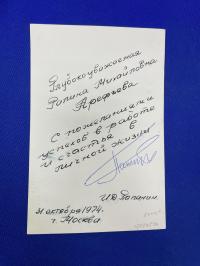 Глубокоуважаемая
Галина Михайловна
Арефьева
С пожеланиями
успехов в работе
и счастья в
личной жизни
И.Д. Папанин
21 октября 1974.
г. Москва